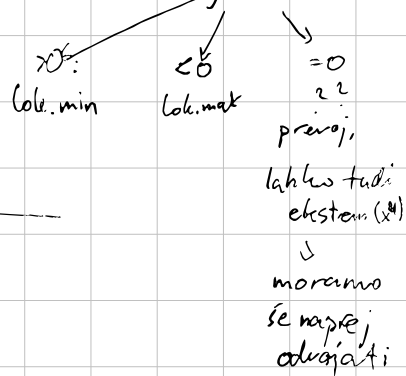 >0: <0 =0
lok.min lok.max ??
prevoj,
lahko tudi
ekstrem (x⁴)
moramo
še naprej
odvajati